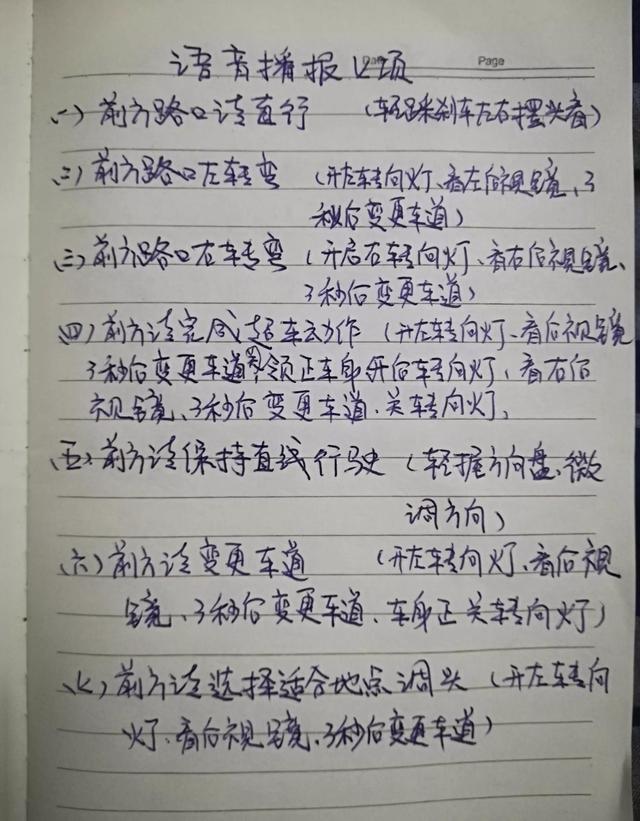 Date
Page
语音播报七项
(一)前方路口请直行 (轻踩刹车左右摆头看)
(二)前方路口左转弯 (开左转向灯、看左后视镜、3
秒后变更车道)
(三)前方路口右转弯 (开启右转向灯、看右后视镜、
3秒后变更车道)
(四)前方请完成超车动作 (开左转向灯、看后视镜
3秒后变更车道 领正车身 开右转向灯、看右后
视镜、3秒后变更车道、关转向灯、
(五)前方请保持直线行驶 (轻握方向盘、微
调方向)
(六)前方请变更车道 (开左转向灯、看后视
镜、3秒后变更车道、车身正关转向灯)
(七)前方请选择适合地点调头 (开左转向
灯、看后视镜、3秒后变更车道)